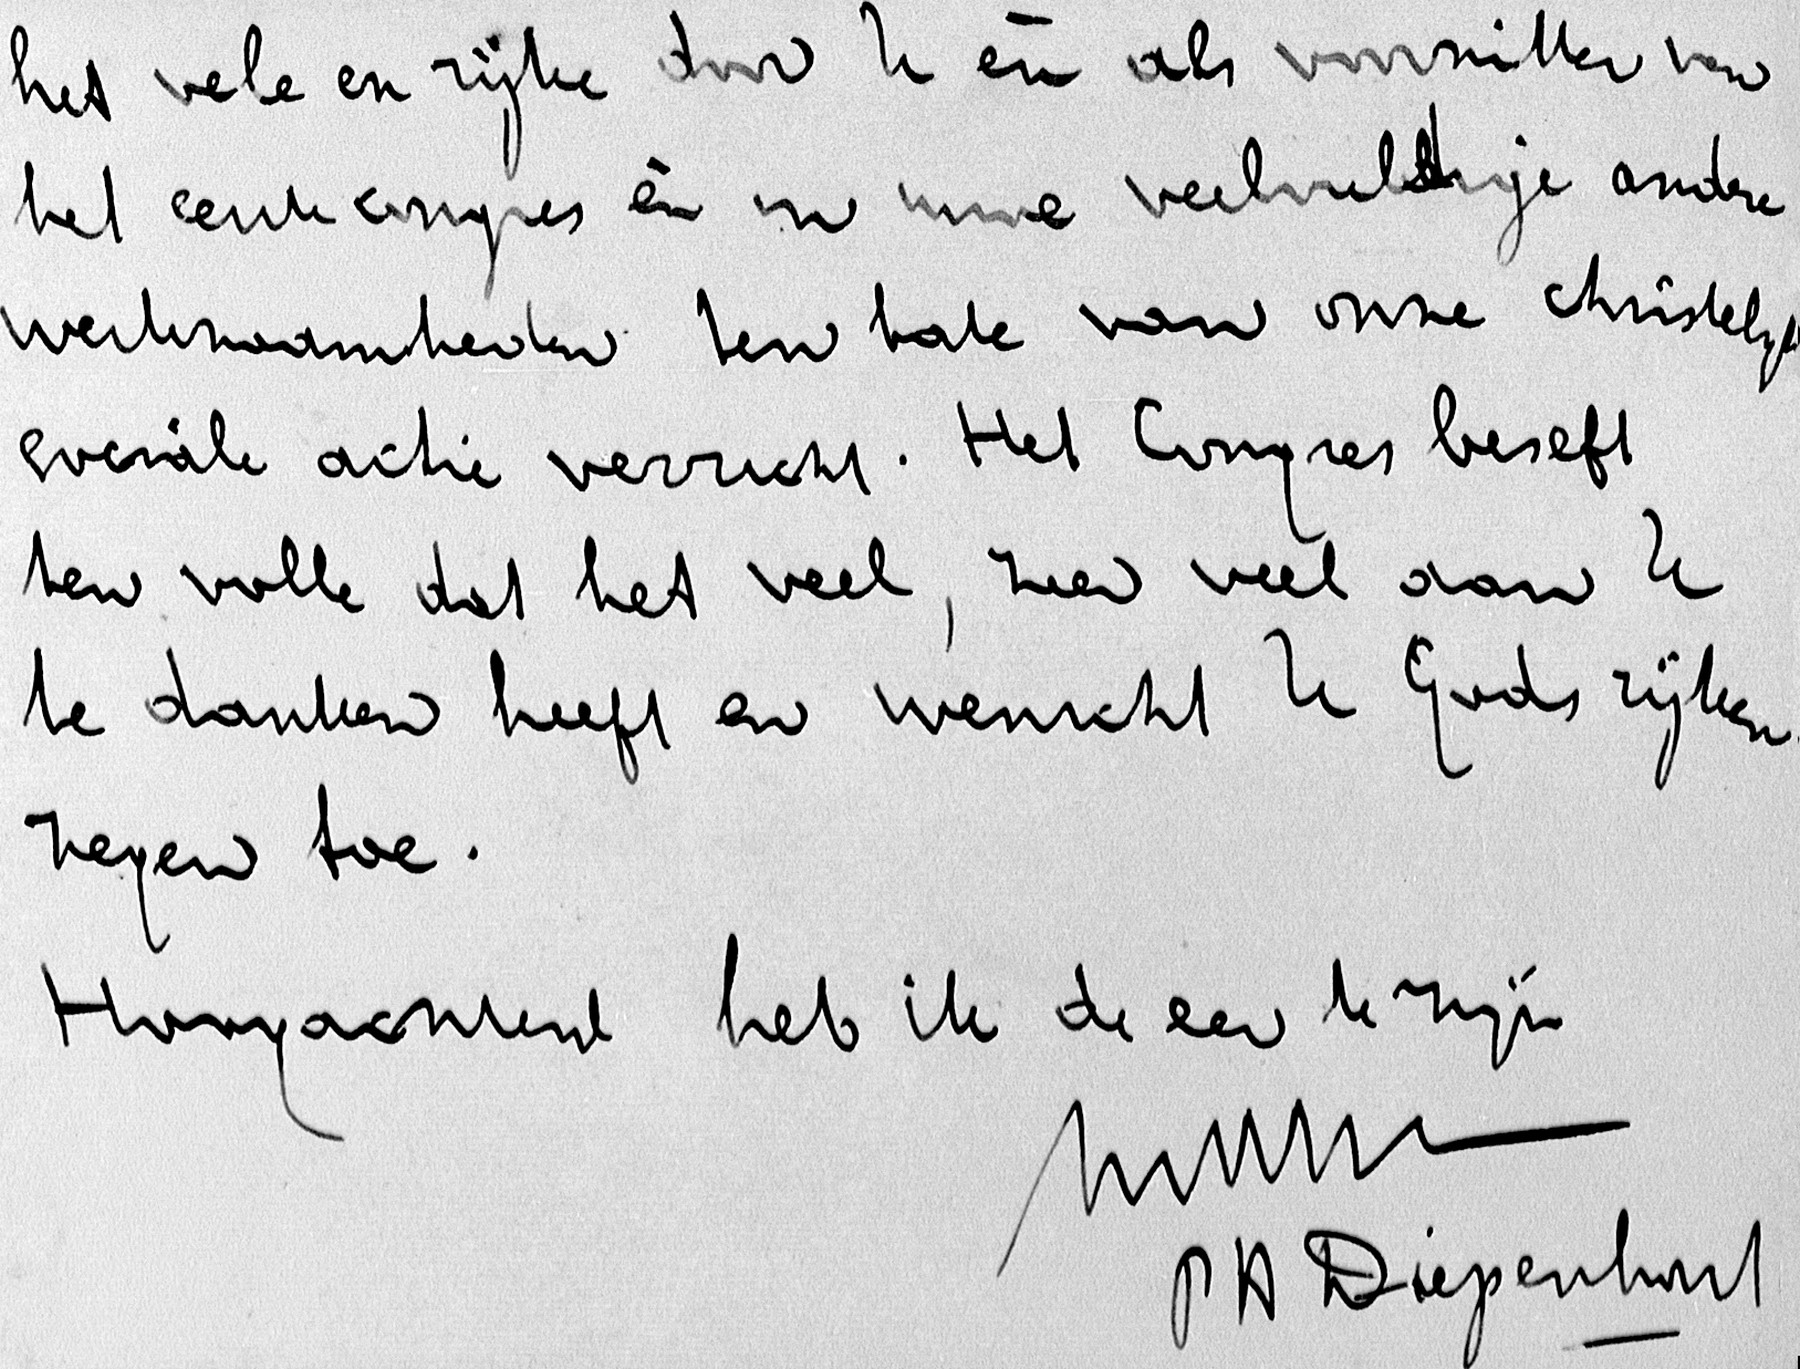 het vele en rijke door U èn als voorzitter van
het eerste congres èn in uwe veelvuldige andere
werkzaamheden ten bate van onze christelijk
sociale actie verricht. Het Congres beseft
ten volle dat het veel, zeer veel aan U
te danken heeft en wenscht U Gods rijken
zegen toe.
Hoogachtend heb ik de eer te zijn
P A Diepenhorst